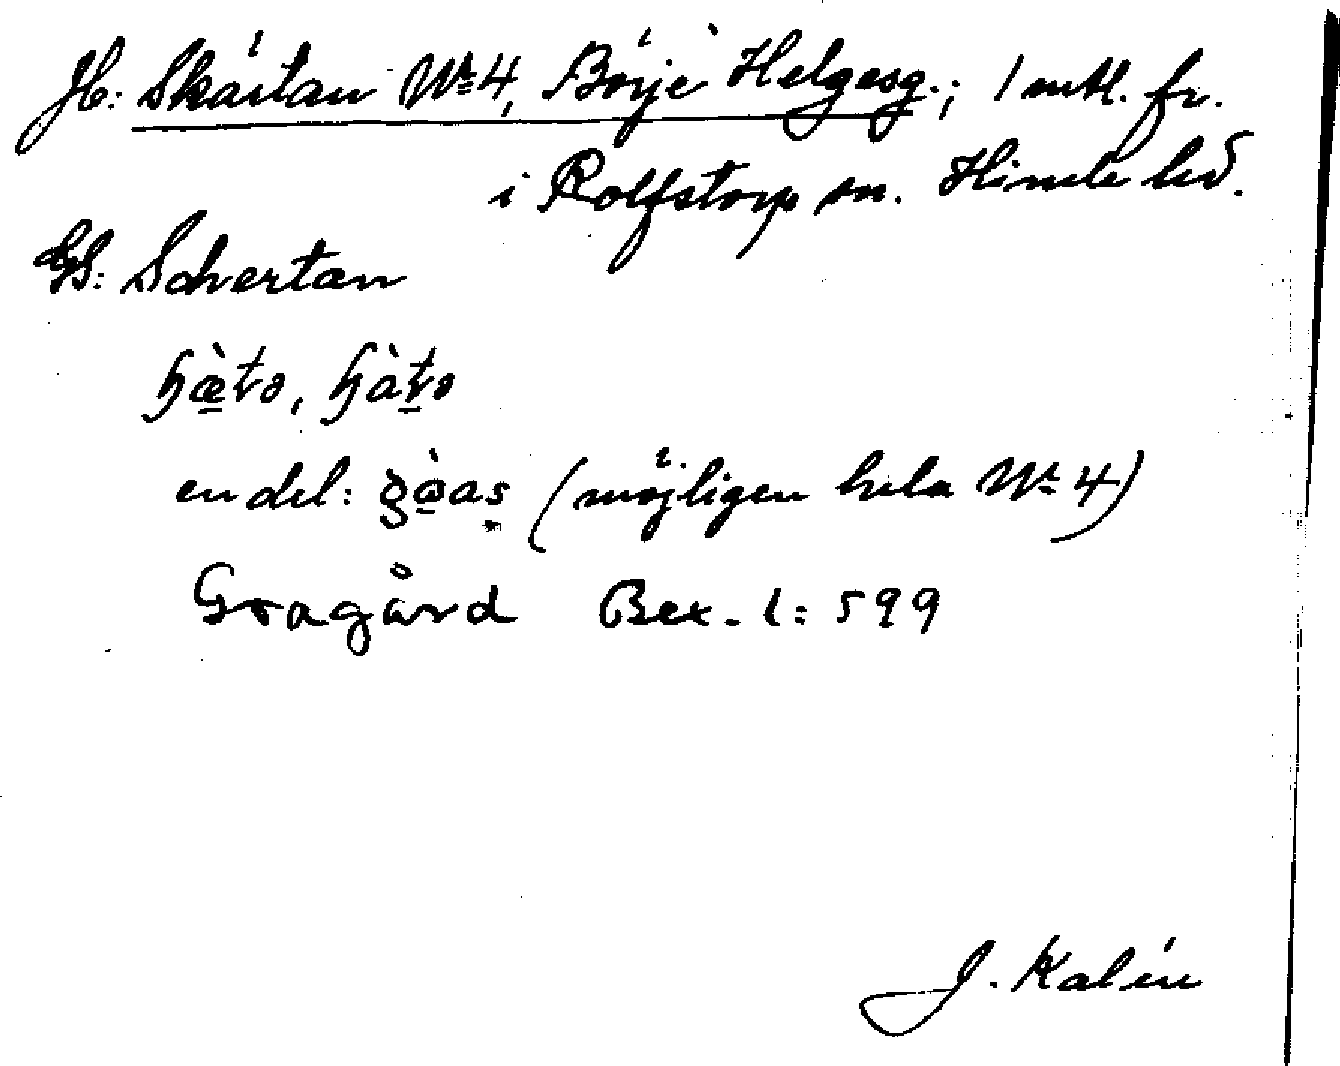 Jb: Skärtan Nr 4, Börje Helgesg.; 1 mtl. fr.
i Rolfstorp sn. Himle hd.
GS: Schertan
en del: (möjligen hela Nr 4)
Gragård Bex. l: 599
J. Kalén